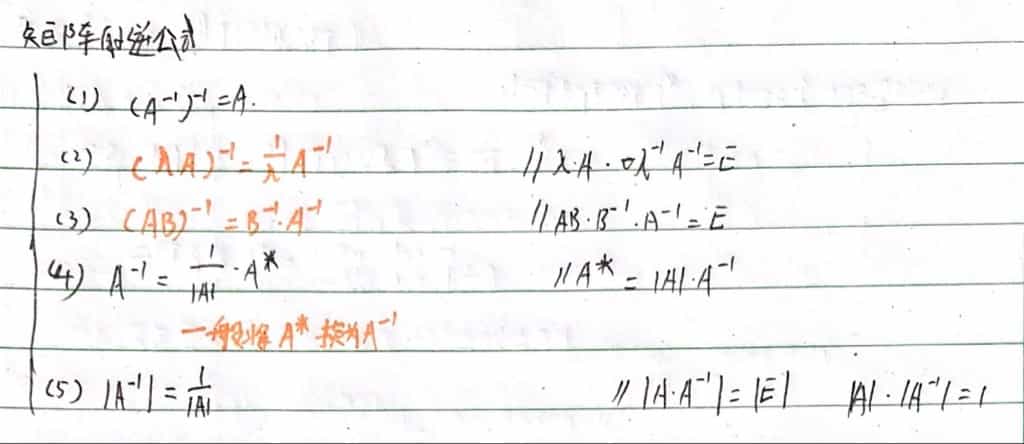 矩阵的逆公式
(1) (A⁻¹)⁻¹=A.
(2) (λA)⁻¹=1/λ A⁻¹ //λ·A·λ⁻¹A⁻¹=E
(3) (AB)⁻¹=B⁻¹·A⁻¹ //AB·B⁻¹·A⁻¹=E
(4) A⁻¹=1/|A|·A* //A*=|A|·A⁻¹
一般将A*换为A⁻¹
(5) |A⁻¹|=1/|A| //|A·A⁻¹|=|E| |A|·|A⁻¹|=1